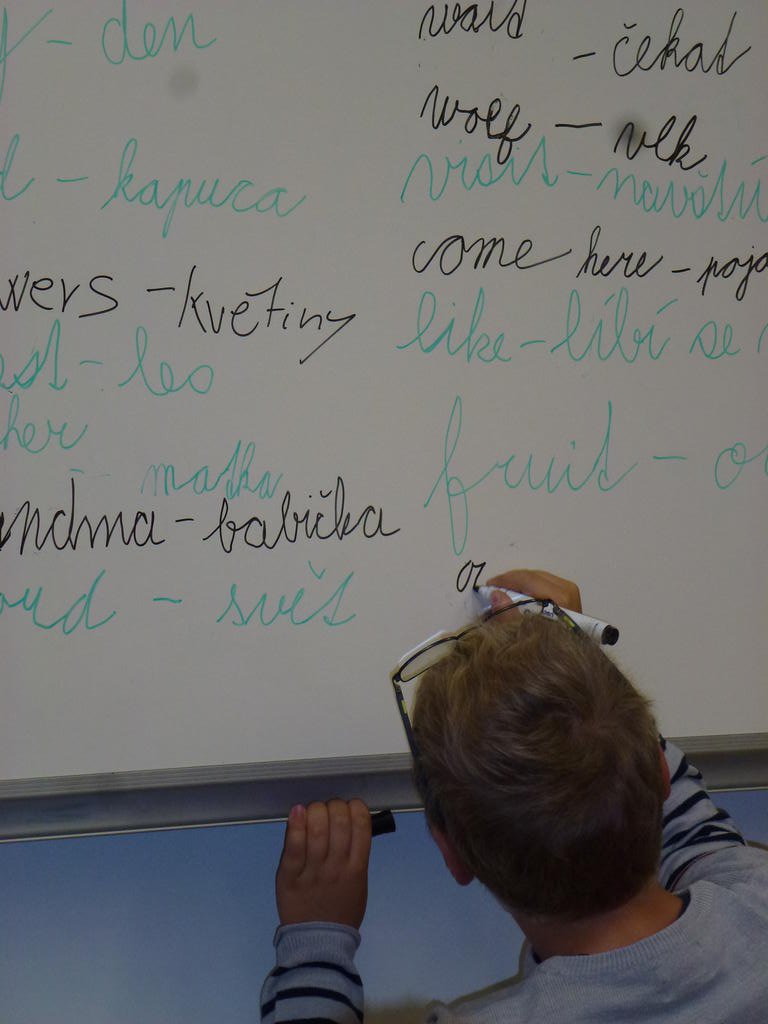 – den
– kapuca
wers – květiny
est – les
her
– matka
andma – babička
ord – svět
waid
– čekat
wolf – vlk
visit – navští
come here – poj
like – líbí se
fruit – o